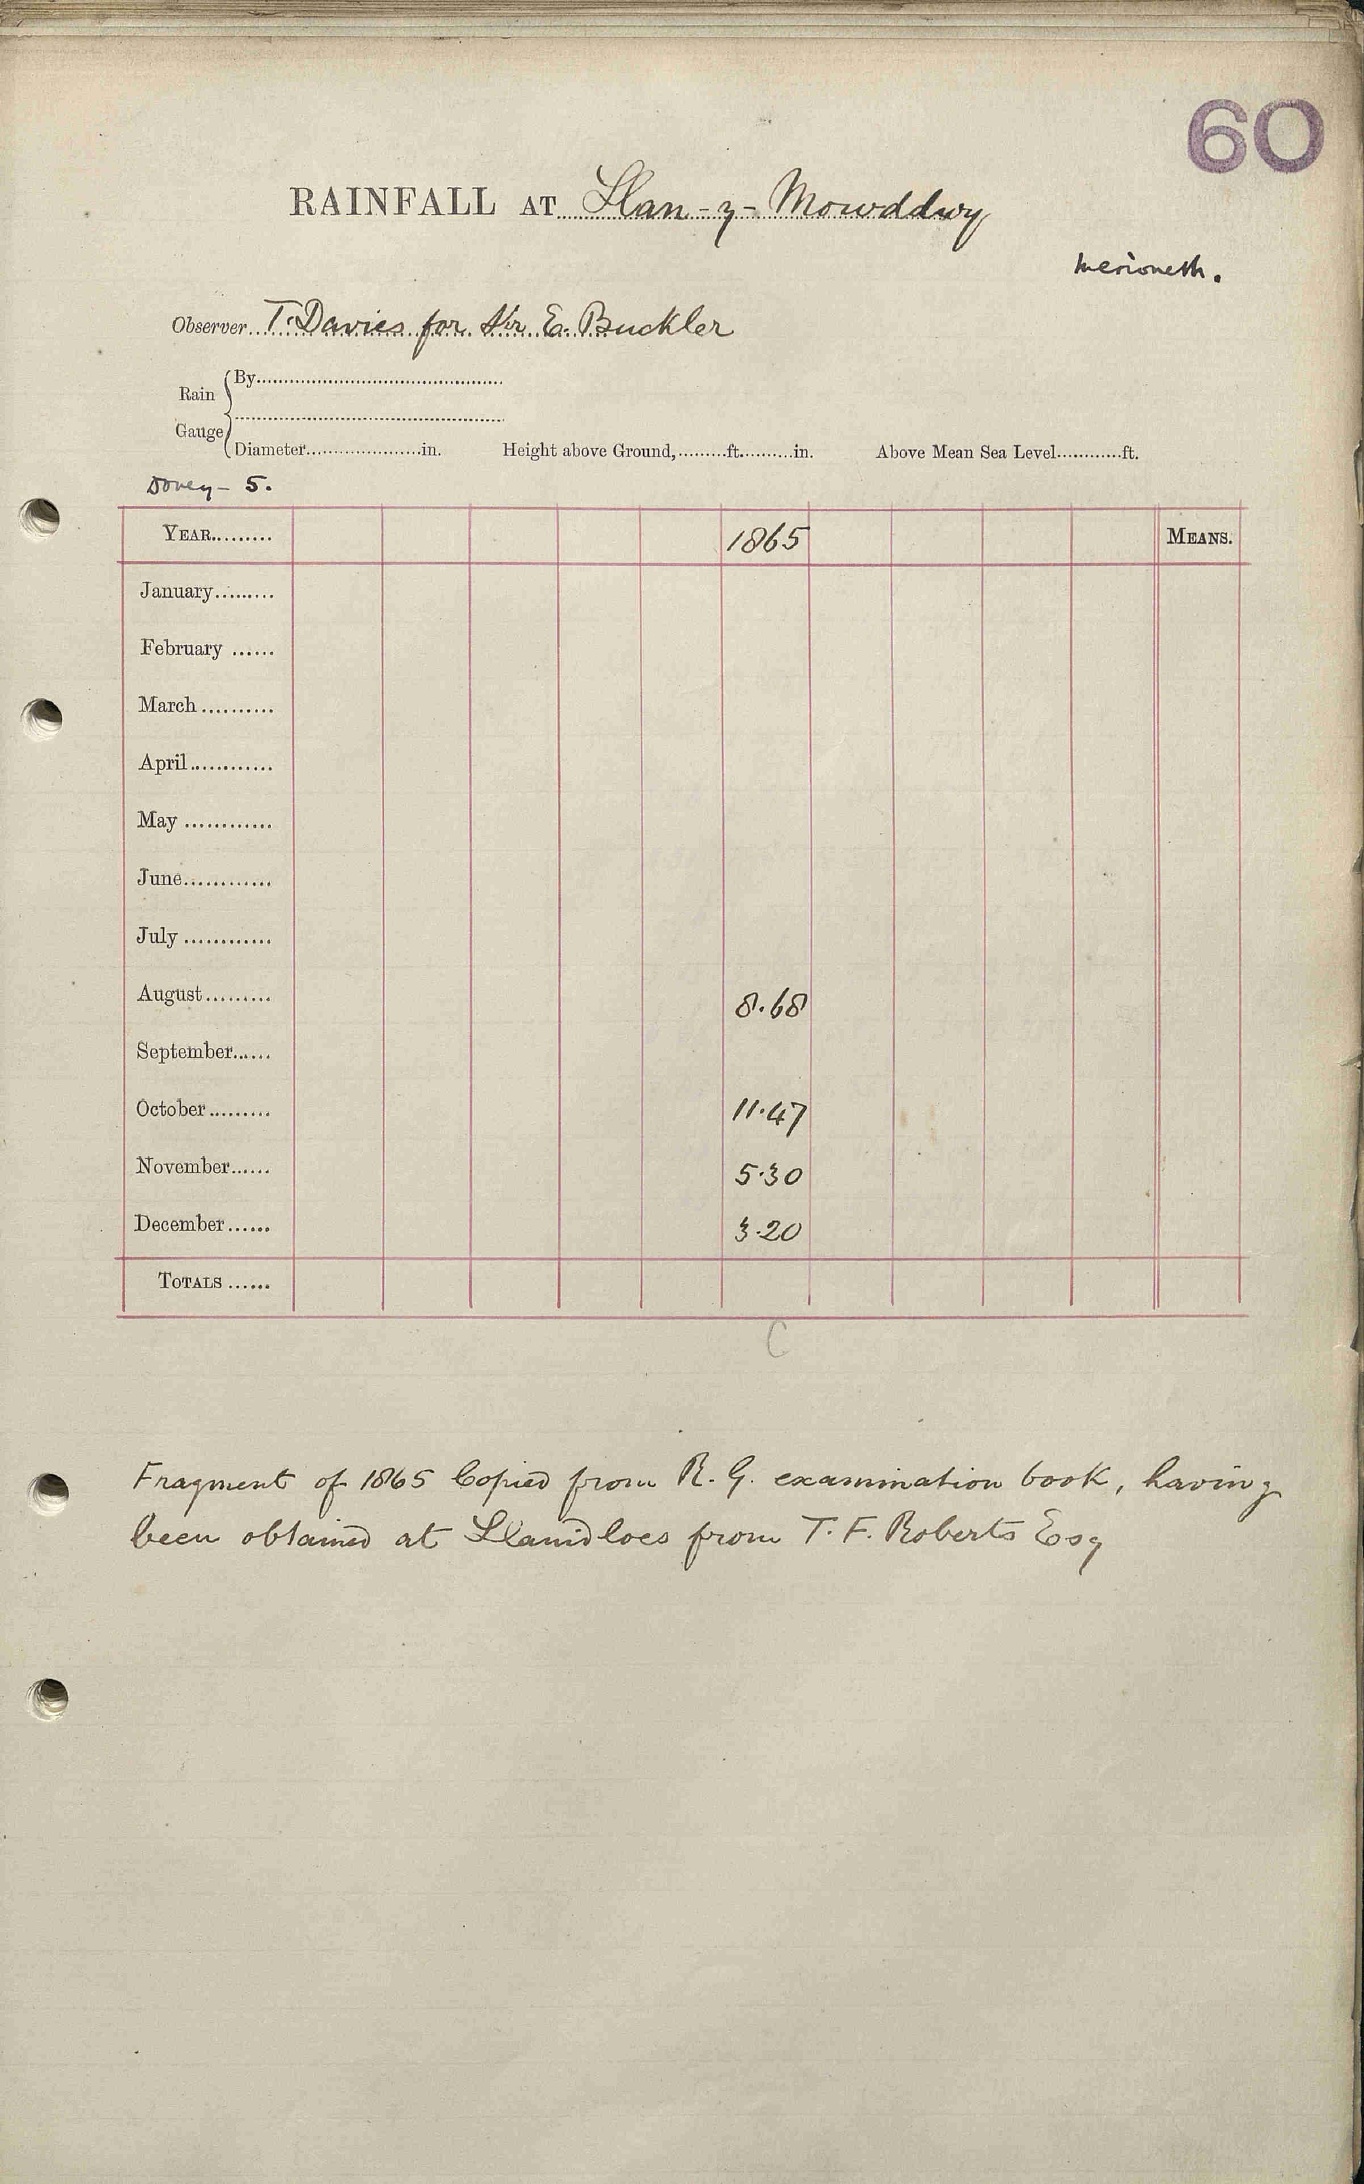 60
RAINFALL AT Llan-y-Mowddwy
Merioneth.
Observer T. Davies for Sir E. Buckler
Rain Gauge
By
Diameter in. Height above Ground, ft. in. Above Mean Sea Level ft.
Dovey - 5.
YEAR 1865 MEANS.
January
February
March
April
May
June
July
August 8.68
September
October 11.47
November 5.30
December 3.20
TOTALS
C
Fragment of 1865 Copied from R. G. examination book, having
been obtained at Llanidloes from T. F. Roberts Esq